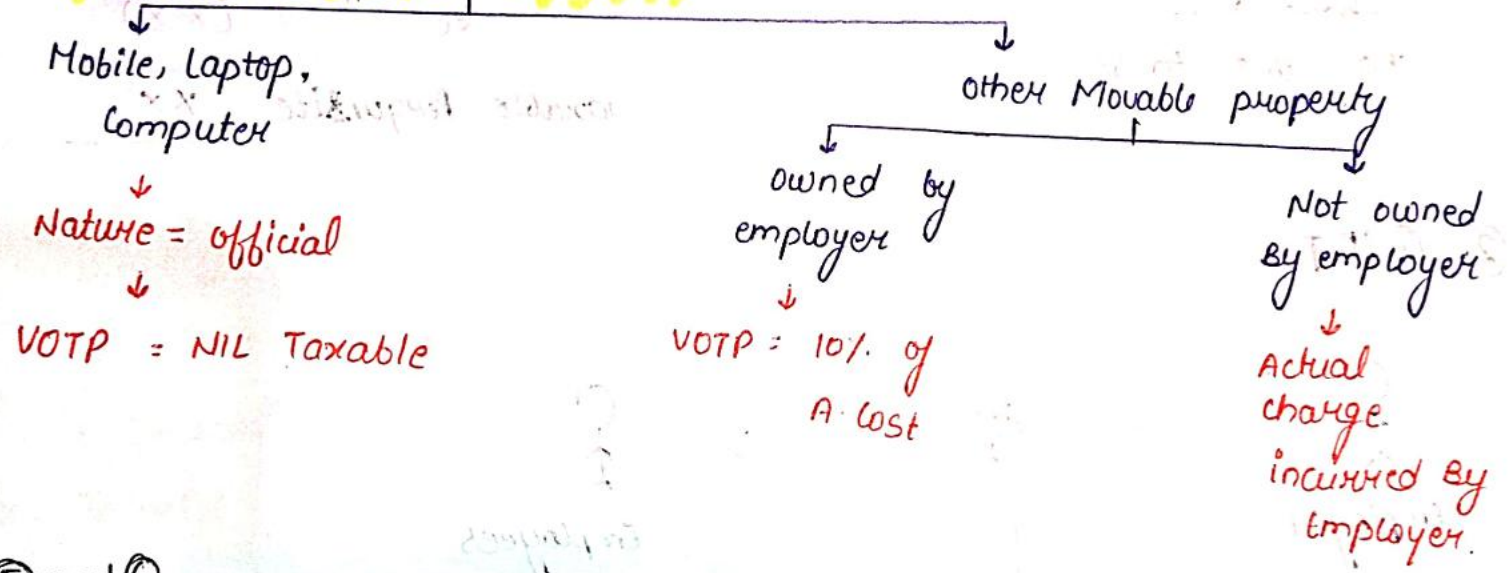 Mobile, Laptop,
Computer
Nature = official
VOTP = NIL Taxable
other Movable property
owned by
employer
VOTP = 10% of
A. Cost
Not owned
By employer
Actual
charge
incurred By
Employer.
Employees